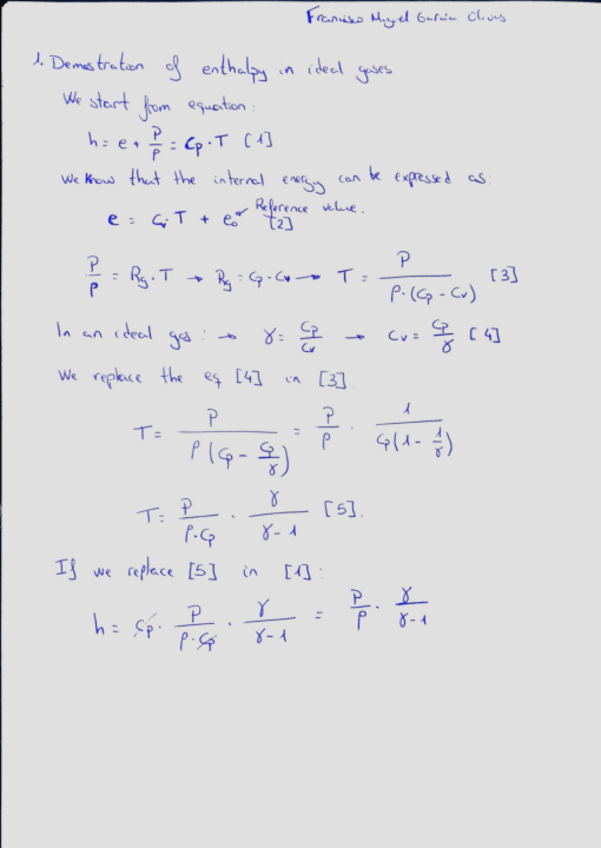 Francisco Miguel García Olivas
1. Demostration of enthalpy in ideal gases
We start from equation:
h = e + P/ρ = Cp · T [1]
We know that the internal energy can be expressed as:
e = Cv · T + e₀ → Reference value. [2]
P/ρ = Rg · T → Rg = Cp - Cv → T = P/(ρ · (Cp - Cv)) [3]
In an ideal gas: → γ = Cp/Cv → Cv = Cp/γ [4]
We replace the eq [4] in [3]
T = P/(ρ(Cp - Cp/γ)) = P/ρ · 1/(Cp(1 - 1/γ))
T = P/(ρ·Cp) · γ/(γ-1) [5].
If we replace [5] in [1]:
h = Cp · P/(ρ·Cp) · γ/(γ-1) = P/ρ · γ/(γ-1)